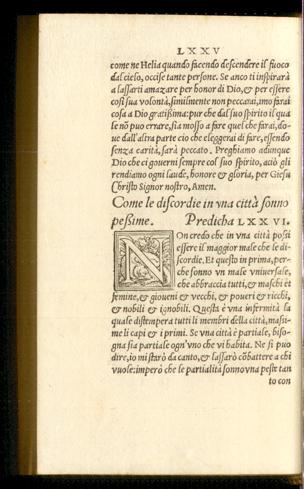 LXXV
come ne Helia quando facendo descendere il fuoco
dal cielo, occise tante persone. Se anco ti inspirarà
a lassarti amazare per honor di Dio, & per essere
così sua volontà, similmente non peccarai, imo farai
cosa a Dio gratissima: pur che dal suo spirito il qua
le nõ puo errare, sia mosso a fare quel che farai, do-
ue dall'altra parte ciò che eleggerai di fare, essendo
senza carità, sarà peccato. Preghiamo adunque
Dio che ci gouerni sempre col suo spirito, aciò gli
rendiamo ogni laude, honore & gloria, per Giesu
Christo Signor nostro, Amen.
Come le discordie in vna città sonno
pessime. Predicha LXXVI.
NOn credo che in vna città possi
essere il maggior male che le di-
scordie. Et questo in prima, per-
che sonno vn male vniuersale,
che abbraccia tutti, & maschi et
femine, & gioueni & vecchi, & poueri & ricchi,
& nobili & ignobili. Questa è vna infermità la
quale distempera tutti li membri della città, massi-
me li capi & i primi. Se vna città è partiale, biso-
gna sia partiale ogn'vno che vi habita. Ne si puo
dire, io mi starò da canto, & lassarò cõbattere a chi
vuole: imperò che se partialità sonno vna peste tan
to con